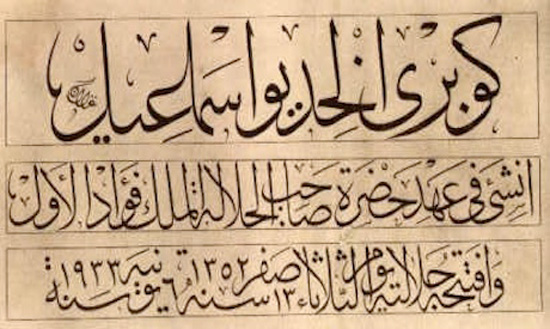 كوبرى الخديو اسماعيل
انشئ فى عهد حضرة صاحب الجلالة الملك فؤاد الأول
وافتتحه جلالته يوم الثلاثاء ١٣ صفر سنة ١٣٥٢ ٦ يونية سنة ١٩٣٣